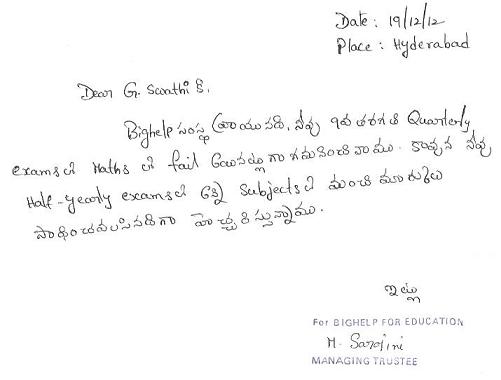 Date : 19/12/12
Place : Hyderabad
Dear G. Swathi కి,
Bighelp సంస్థ వ్రాయునది, నీవు 9వ తరగతి Quarterly
exams లో Maths లో fail అయినట్లుగా గమనించినాము. కావున నీవు
Half-yearly exams లో అన్ని Subjects లో మంచి మార్కులు
సాధించవలసినదిగా హెచ్చరిస్తున్నాము.
ఇట్లు
For BIGHELP FOR EDUCATION
M. Sarojini
MANAGING TRUSTEE